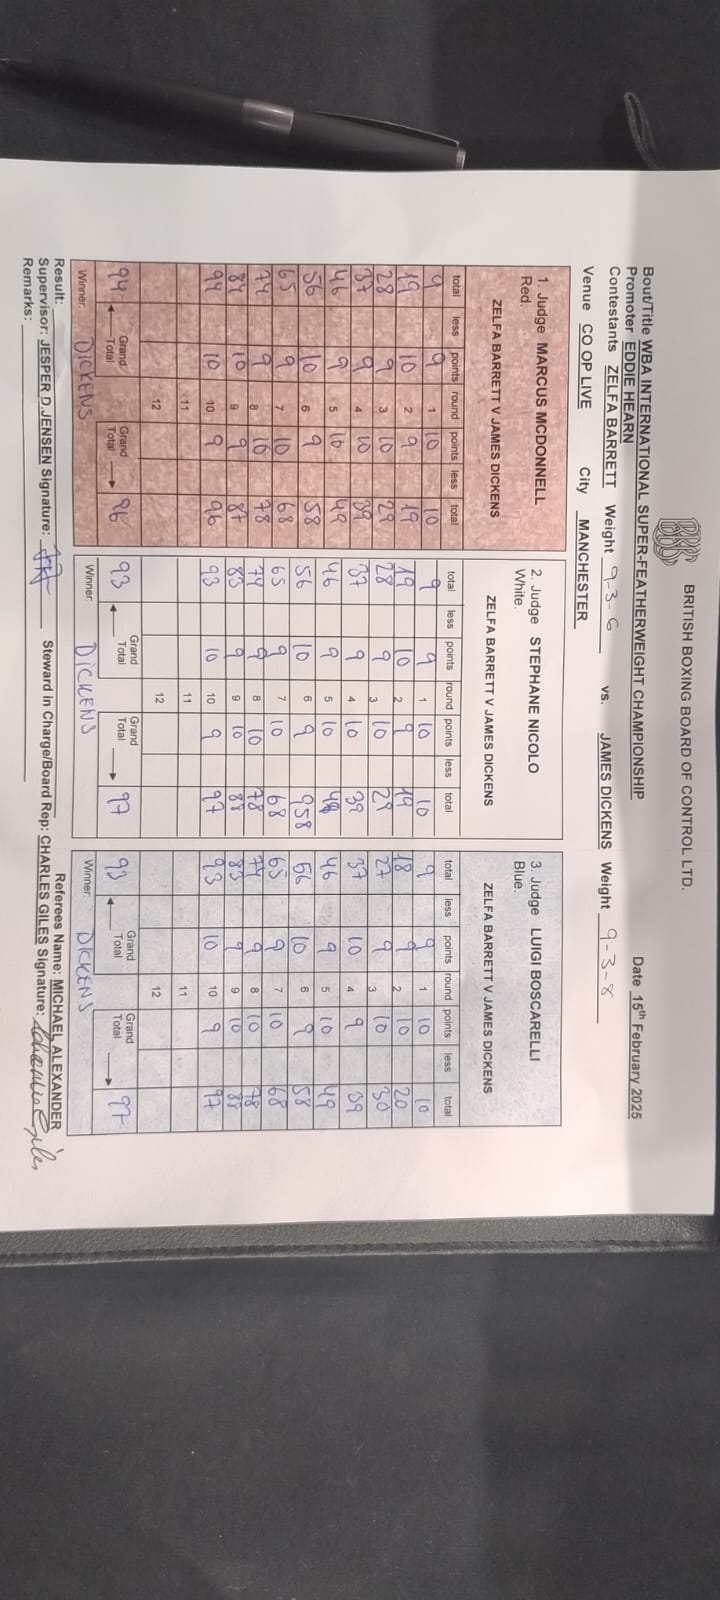 BRITISH BOXING BOARD OF CONTROL LTD.
Bout/Title WBA INTERNATIONAL SUPER-FEATHERWEIGHT CHAMPIONSHIP Date 15th February 2025
Promoter EDDIE HEARN
Contestants ZELFA BARRETT Weight 9-3-6 vs. JAMES DICKENS Weight 9-3-8
Venue CO OP LIVE City MANCHESTER
1. Judge MARCUS MCDONNELL
Red.
ZELFA BARRETT V JAMES DICKENS
total less points round points less total
9 9 1 10 10
19 10 2 9 19
28 9 3 10 29
37 9 4 10 39
46 9 5 10 49
56 10 6 9 58
65 9 7 10 68
74 9 8 10 78
84 10 9 9 87
94 10 10 9 96
11
12
94 ← Grand Total Grand Total → 96
Winner: DICKENS
2. Judge STEPHANE NICOLO
White.
ZELFA BARRETT V JAMES DICKENS
total less points round points less total
9 9 1 10 10
19 10 2 9 19
28 9 3 10 29
37 9 4 10 39
46 9 5 10 49
56 10 6 9 958
65 9 7 10 68
74 9 8 10 78
83 9 9 10 88
93 10 10 9 97
11
12
93 ← Grand Total Grand Total → 97
Winner: DICKENS
3. Judge LUIGI BOSCARELLI
Blue.
ZELFA BARRETT V JAMES DICKENS
total less points round points less total
9 9 1 10 10
18 9 2 10 20
27 9 3 10 30
37 10 4 9 39
46 9 5 10 49
56 10 6 9 58
65 9 7 10 68
74 9 8 10 78
83 9 9 10 88
93 10 10 9 97
11
12
93 ← Grand Total Grand Total → 97
Winner: DICKENS
Result: Referees Name: MICHAEL ALEXANDER
Supervisor: JESPER D.JENSEN Signature: Steward in Charge/Board Rep: CHARLES GILES Signature:
Remarks: